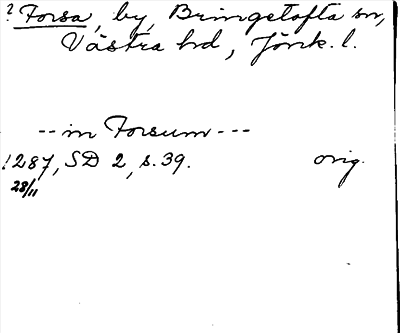 ? Forsa, by, Bringetofta sn,
Västra hd, Jönk. l.
-- in Forsum ---
1287, SD 2, s. 39. orig.
28/11